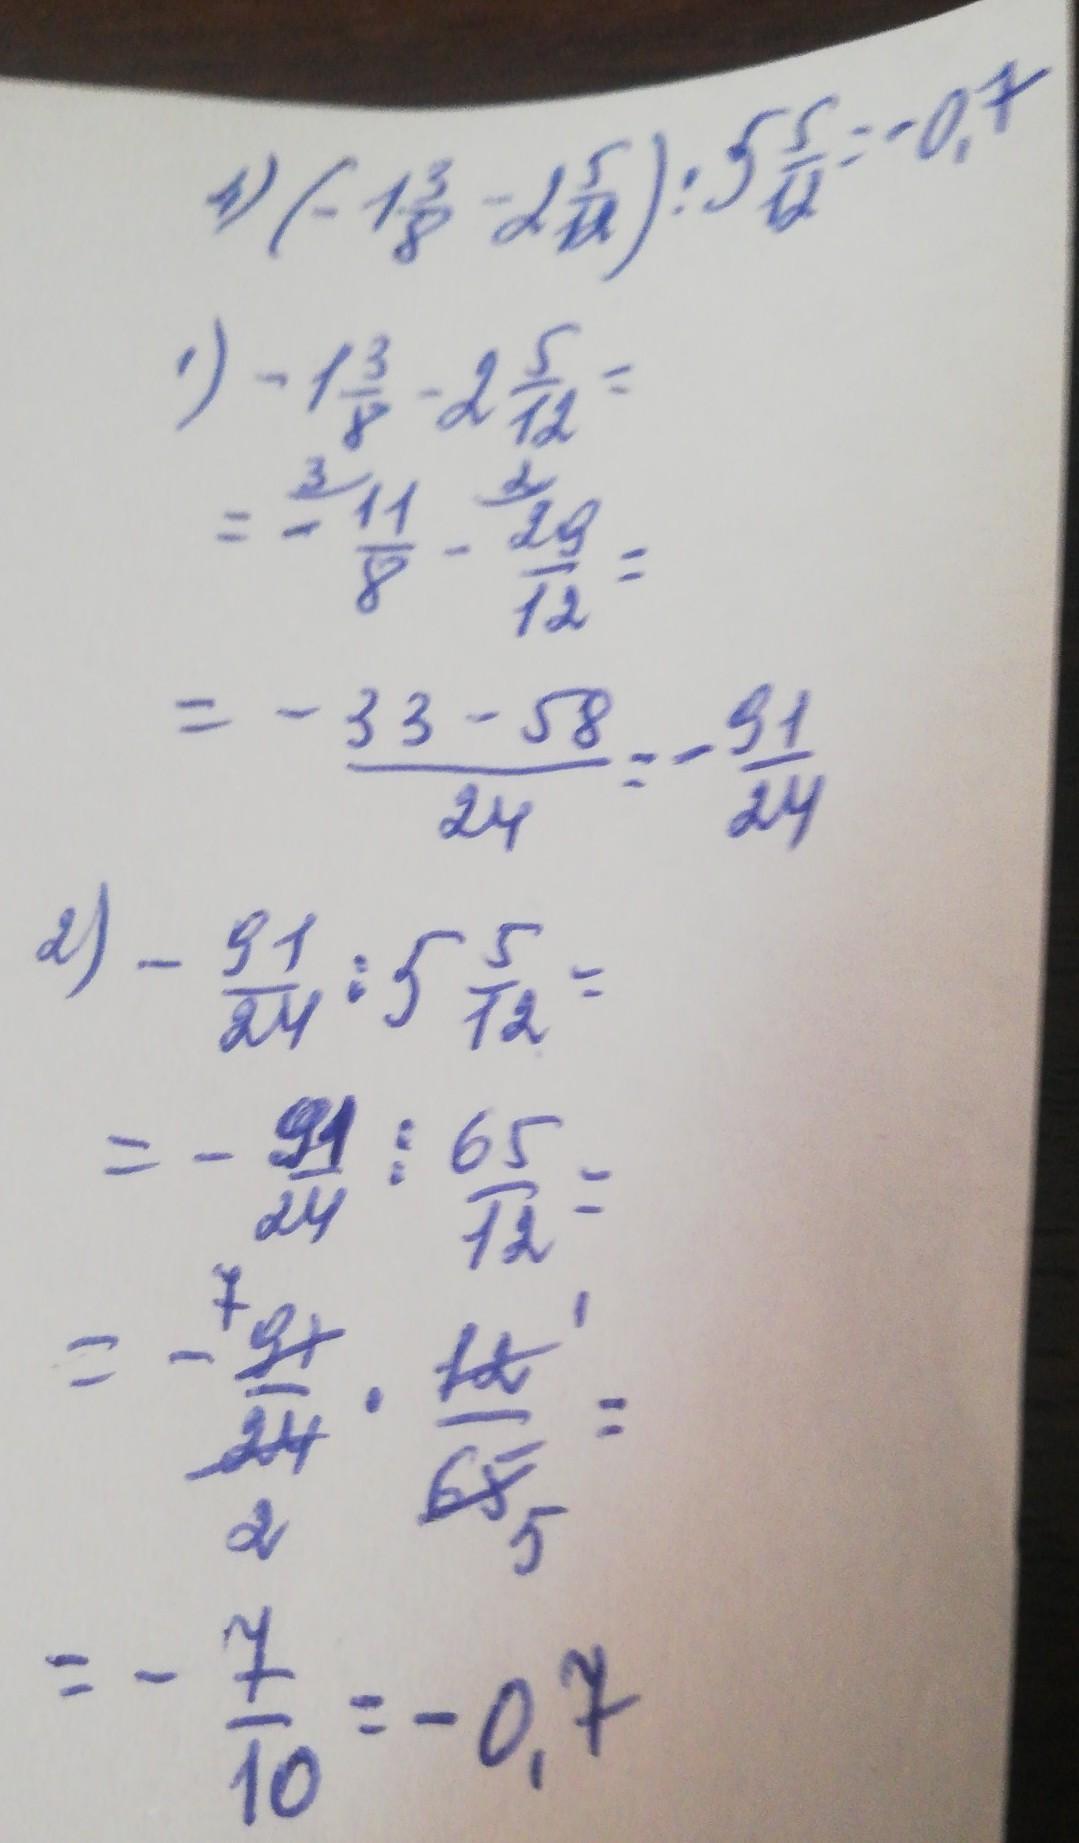 1) (-1 3/8 - 2 5/12) : 5 5/12 = -0,7
1) -1 3/8 - 2 5/12 =
= - 3 11/8 - 2 29/12 =
= - 33 - 58 / 24 = - 91/24
2) - 91/24 : 5 5/12 =
= - 91/24 : 65/12 =
= - 7 91/24 2 · 12 1/65 5 =
= - 7/10 = -0,7